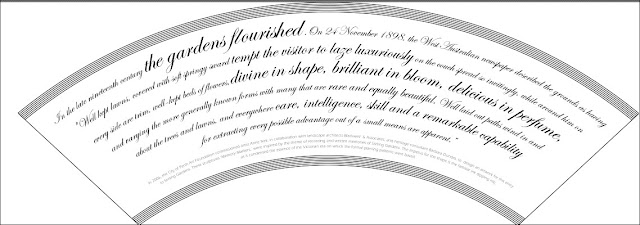 In the late nineteenth century the gardens flourished. On 24 November 1898, the West Australian newspaper described the grounds as having
"Well kept lawns, covered with soft springy sward tempt the visitor to laze luxuriously on the couch spread so invitingly, while around him on
every side are trim, well-kept beds of flowers, divine in shape, brilliant in bloom, delicious in perfume,
and varying the more generally known forms with many that are rare and equally beautiful. Well laid out paths wind in and
about the trees and lawns, and everywhere care, intelligence, skill and a remarkable capability
for extracting every possible advantage out of a small means are apparent."